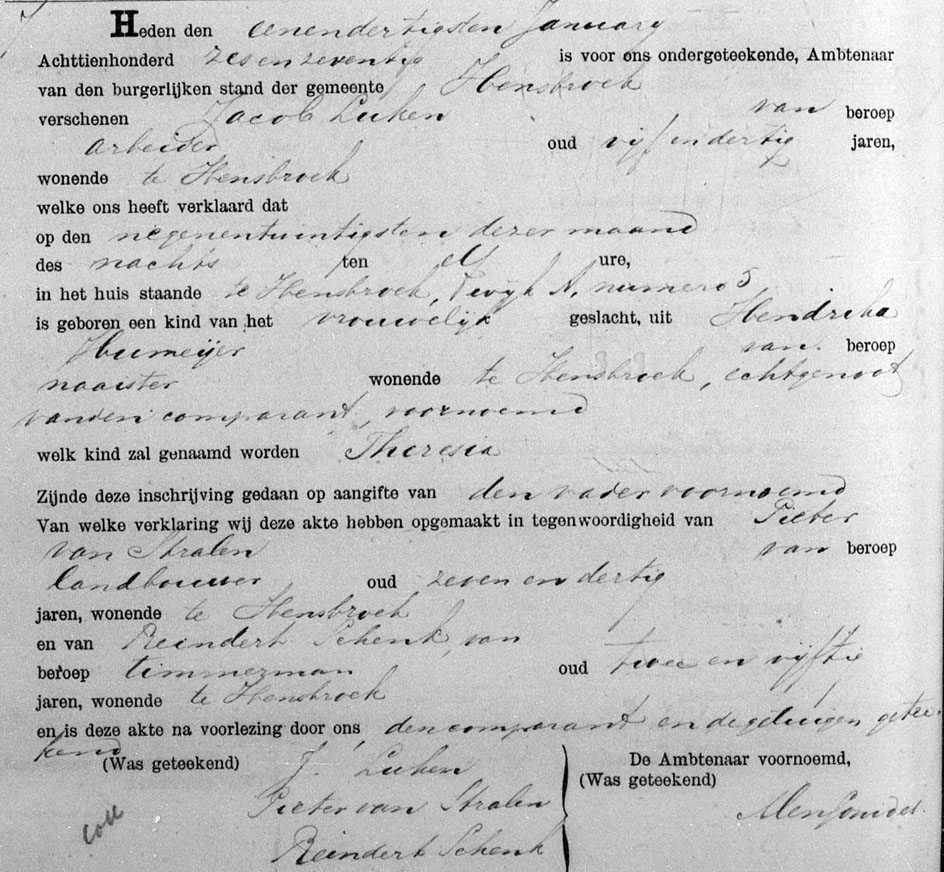 Heden den eenendertigsten January
Achttienhonderd zesenzeventig is voor ons ondergeteekende, Ambtenaar
van den burgerlijken stand der gemeente Hensbroek
verschenen Jacob Luken van beroep
arbeider oud vijf en dertig jaren,
wonende te Hensbroek
welke ons heeft verklaard dat
op den negenentwintigsten dezer maand
des nachts ten elf ure,
in het huis staande te Hensbroek, Wijk A, numero 5
is geboren een kind van het vrouwelijk geslacht, uit Hendrika
Humeijer van beroep
naaister wonende te Hensbroek, echtgenoot
van den comparant, voornoemd
welk kind zal genaamd worden Theresia
Zijnde deze inschrijving gedaan op aangifte van den vader voornoemd
Van welke verklaring wij deze akte hebben opgemaakt in tegenwoordigheid van Pieter
van Stralen van beroep
landbouwer oud zeven en dertig
jaren, wonende te Hensbroek
en van Reindert Schenk, van
beroep timmerman oud twee en vijftig
jaren, wonende te Hensbroek
en is deze akte na voorlezing door ons, den comparant en de getuigen getee-
kend
(Was geteekend) J. Luken De Ambtenaar voornoemd,
(Was geteekend)
Pieter van Stralen
coll Reindert Schenk